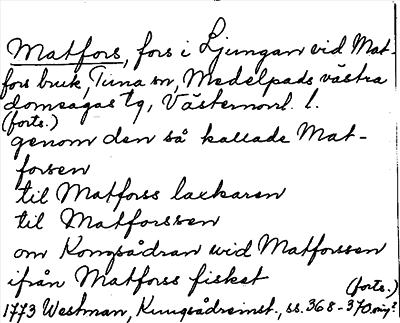 Matfors, fors i Ljungan vid Mat-
fors bruk, Tuna sn, Medelpads västra
domsagas tg, Västernorrl. l.
(forts.)
genom den så kallade Mat-
forsen
till Matforss laxkaren
til Matforssen
om Kongsådran wid Matforssen
ifrån Matforss fisket
(forts.)
1773 Westman, Kungsådreinst., ss. 368-370